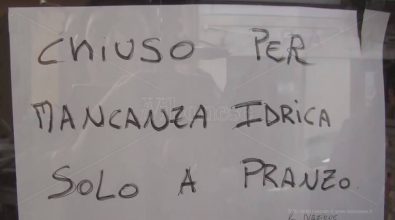 CHIUSO PER
MANCANZA IDRICA
SOLO A PRANZO.